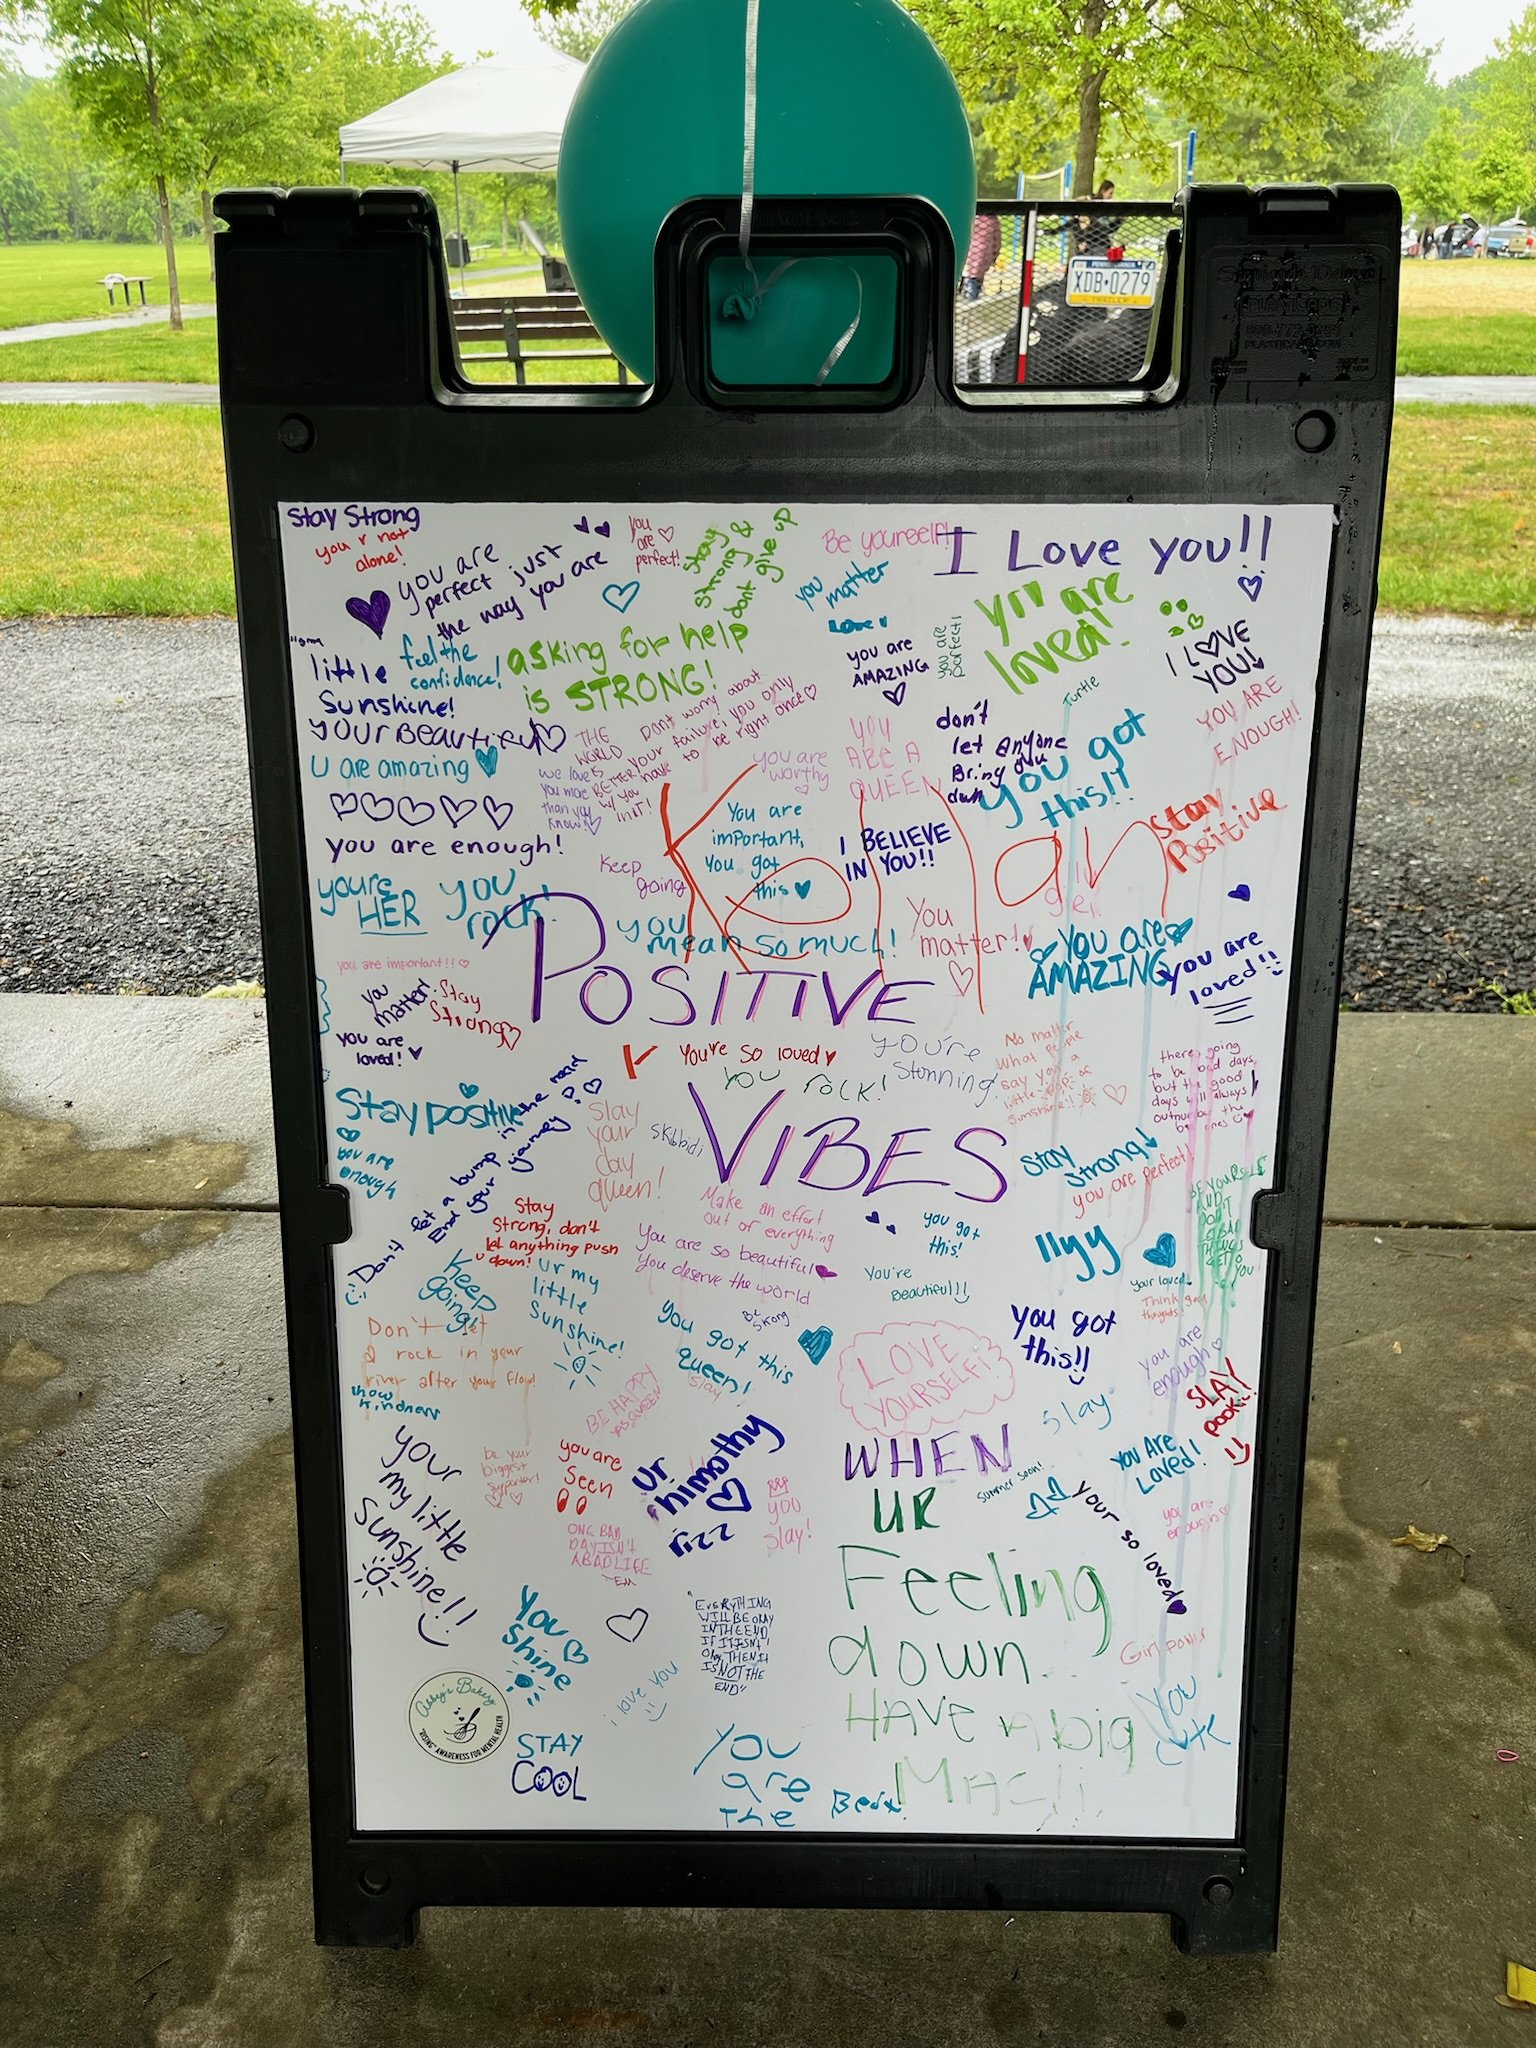 XDB·0279
TRAILER
Stay Strong
you r not
alone!
you are
perfect just
the way you are
you
are
perfect!
Stay
Strong &
dont give up
Be yourself!
I Love you!!
you
matter
Love
you are
AMAZING
you are
perfect!
you are
loved!
I LOVE
YOU!
little
Sunshine!
feel the
confidence!
asking for help
is STRONG!
YOUR BEAUTIFUL
U are amazing
THE
WORLD
IS
BETTER
W/ YOU
IN IT!
Dont worry about
your failure, you only
have to be right once
we love
you more
than you
know
you are
worthy
YOU
ARE A
QUEEN
don't
let anyone
Bring you
dwn
Turtle
you got
this!!
YOU ARE
ENOUGH!
you are enough!
You are
important,
You got
this
I BELIEVE
IN YOU!!
Stay
Positive
Keep
going
you're
HER
you
rock!
you
mean so much!
You
matter!
You are
AMAZING
you are
loved!!
you are important!!
POSITIVE
you
matter!
Stay
Strong
you are
loved!
You're so loved
You rock!
you're
stunning!
No matter
what people
say your a
little POP of
sunshine!!
there going
to be bad days,
but the good
days will always
outnumber the
bad ones
Stay positive
you are
enough
Don't let a bump in the road
End your journey!
Slay
your
day
queen!
Skibbidi
VIBES
Stay
strong
you are perfect!
BE YOURSELF
AND
DON'T
LET BAD
THINGS
GET TO
YOU
Stay
Strong, don't
let anything push
u down!
Make an effort
out of everything
You are so beautiful
You deserve the world
you got
this!
llyy
Keep
going!
ur my
little
Sunshine!
You're
Beautiful!!
your loved
Think good
thoughts!
Don't let
a rock in your
river alter your flow!
show
kindness
you got this
queen!
slay
Be
Strong
LOVE
YOURSELF!
You got
this!!
you are
enough
BE HAPPY
QUEEN
slay
SLAY
POOKIE!
your
my little
Sunshine!!
be your
biggest
supporter!
you are
Seen
ur
himothy
rizz
YOU
slay!
WHEN
UR
Feeling
down
HAVE A big
Mac!!
summer soon!
You Are
Loved!
your so loved
you are
enough
ONE BAD
DAY ISN'T
A BAD LIFE
-EM
You
Shine
"EVERYTHING
WILL BE OKAY
IN THE END
IF IT ISN'T
Okay, THEN IT
IS NOT THE
END"
Girl power
i love you
You
cute
Abby's Bakery
"RISING" AWARENESS FOR MENTAL HEALTH
STAY
COOL
You
are
the Best!